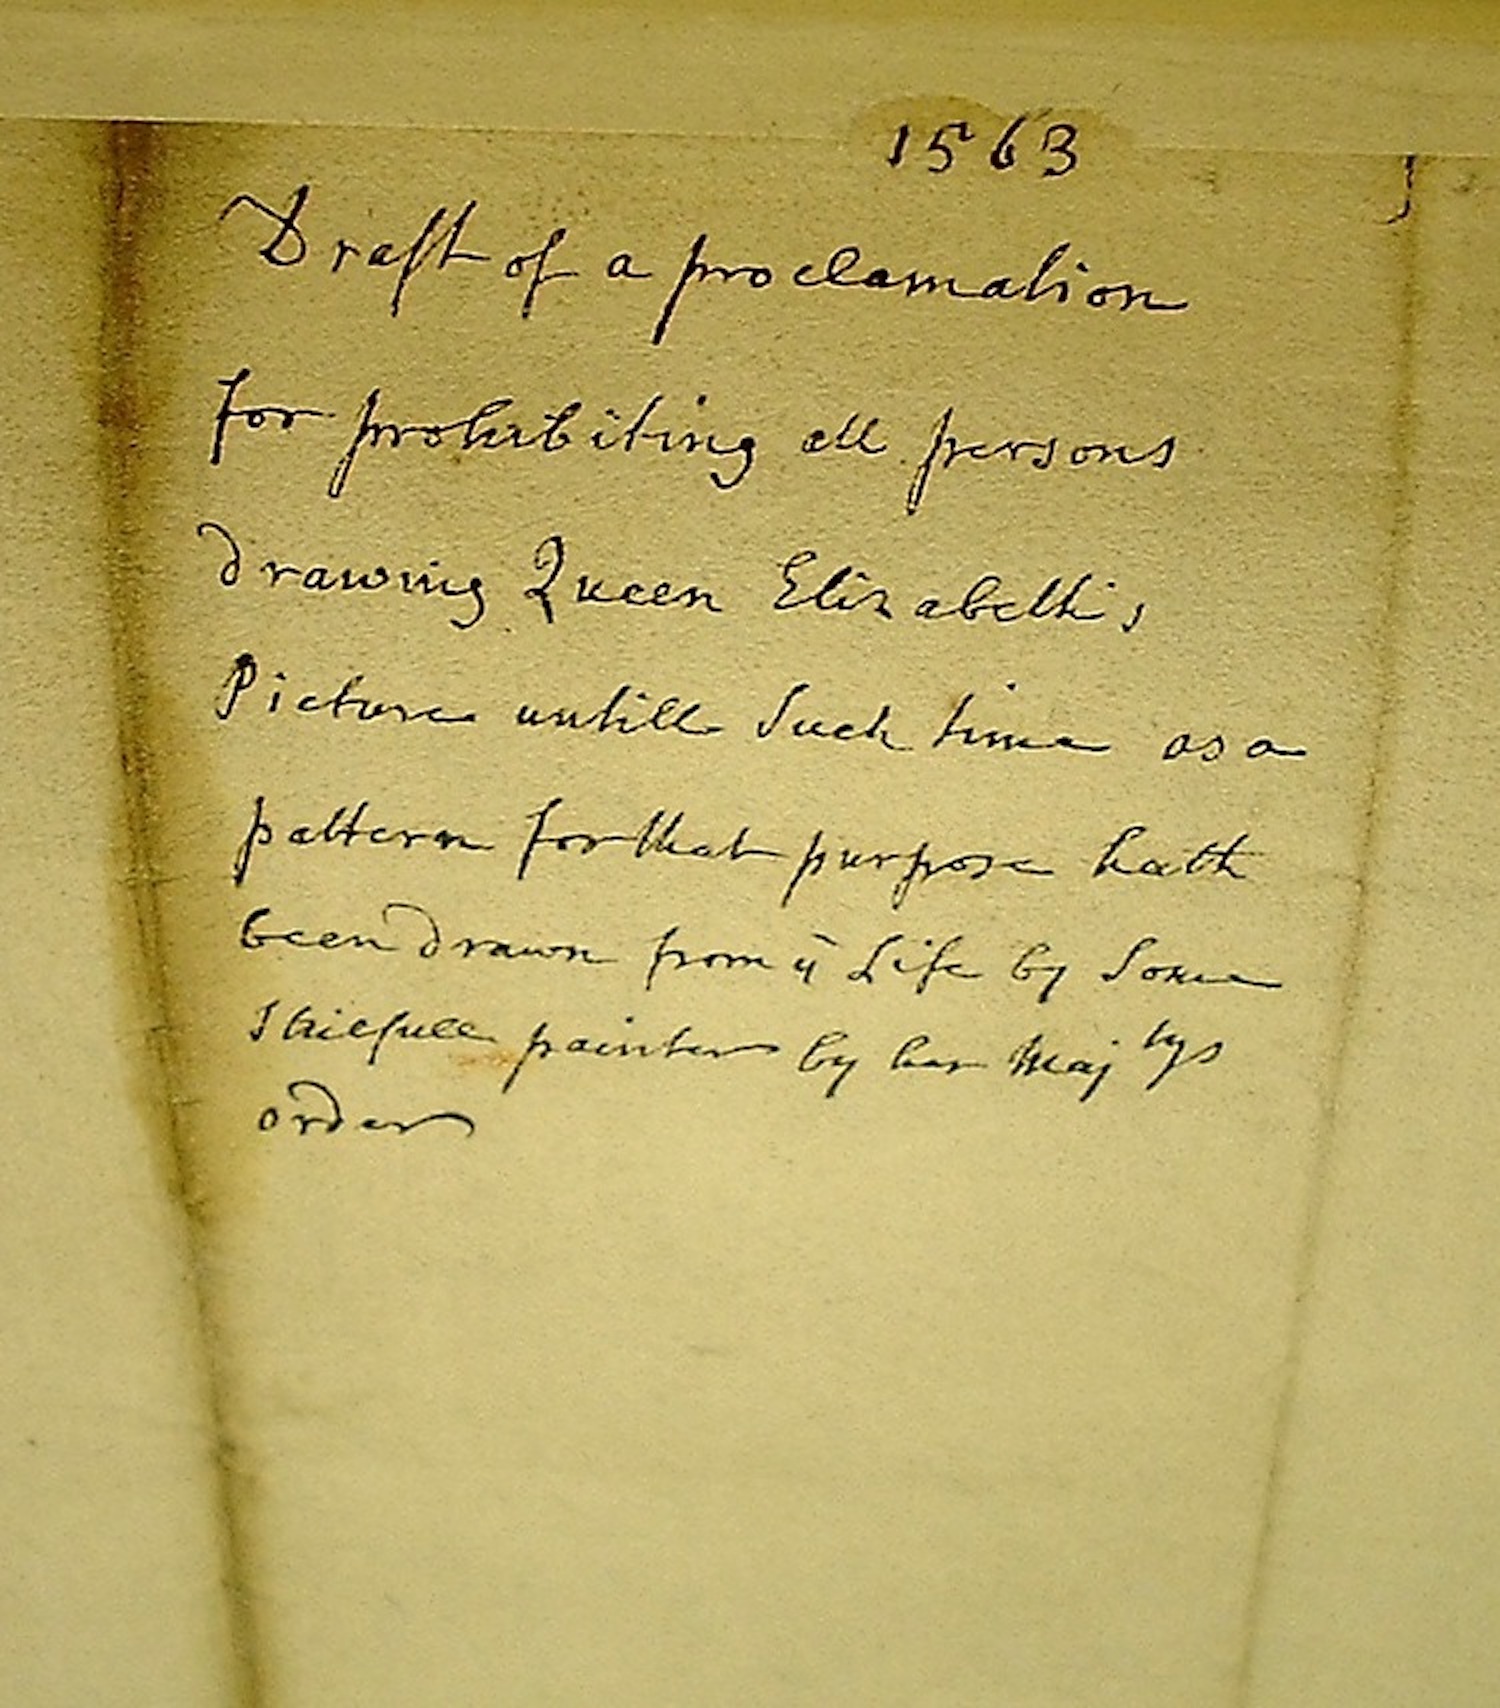 1563
Draft of a proclamation
for prohibiting all persons
drawing Queen Elizabeth's
Picture untill Such time as a
pattern for that purpose hath
been drawn from ÿ Life by Some
Skilfull painter by her Majtys
order